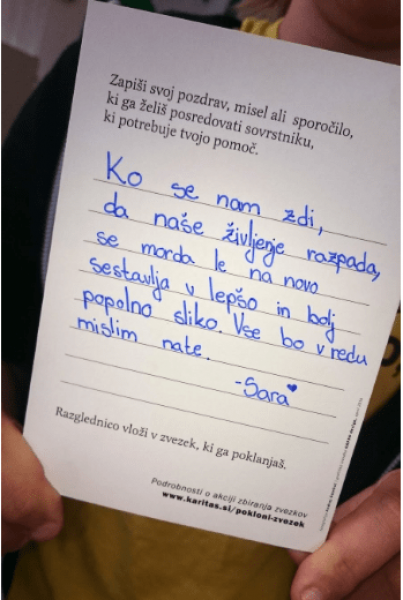 Zapiši svoj pozdrav, misel ali sporočilo,
ki ga želiš posredovati sovrstniku,
ki potrebuje tvojo pomoč.
Ko se nam zdi,
da naše življenje razpada,
se morda le na novo
sestavlja v lepšo in bolj
popolno sliko. Vse bo v redu
mislim nate.
-Sara
Razglednico vloži v zvezek, ki ga poklanjaš.
Podrobnosti o akciji zbiranja zvezkov
www.karitas.si/pokloni-zvezek